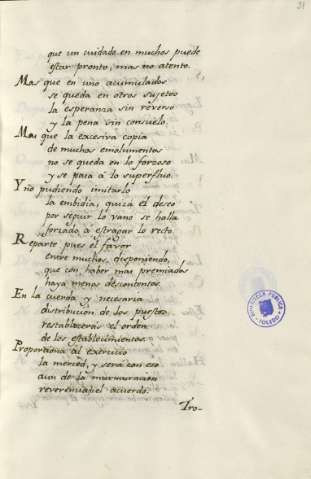 31
que un cuidado en muchos puede
estar pronto, mas no atento.
Mas que en uno acumulados
se queda en otros sujetos
la esperanza sin reverso
y la pena sin consuelo.
Mas que la excesiva copia
de muchos emolumentos
no se queda en lo forzoso
y se pasa à lo superfluo.
Y no pudiendo imitarlo
la embidia, quizá el deseo
por seguir lo vano se halla
forzado à estragar lo recto.
Reparte pues el favor
entre muchos, disponiendo,
que con haber mas premiados
haya menos descontentos.
En la cuerda y necesaria
distribucion de los puestos
restableceràs el orden
de los establecimientos.
Proporciona al exercicio
la merced, y será con eso
aun de la murmuracion
reverenciado el acuerdo.
Tro-
BIBLIOTECA PUBLICA
TOLEDO